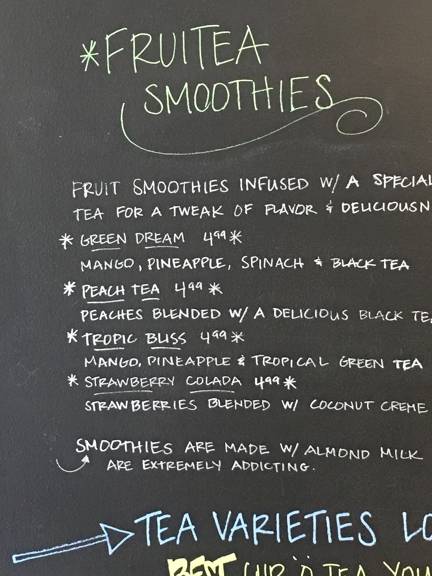 *FRUITEA
SMOOTHIES
FRUIT SMOOTHIES INFUSED W/ A SPECIAL
TEA FOR A TWEAK OF FLAVOR & DELICIOUSN
* GREEN DREAM 4.99 *
MANGO, PINEAPPLE, SPINACH & BLACK TEA
* PEACH TEA 4.99 *
PEACHES BLENDED W/ A DELICIOUS BLACK TE
* TROPIC BLISS 4.99 *
MANGO, PINEAPPLE & TROPICAL GREEN TEA
* STRAWBERRY COLADA 4.99 *
STRAWBERRIES BLENDED W/ COCONUT CREME
SMOOTHIES ARE MADE W/ ALMOND MILK
ARE EXTREMELY ADDICTING.
TEA VARIETIES LO
BEST CUP O TEA YOU